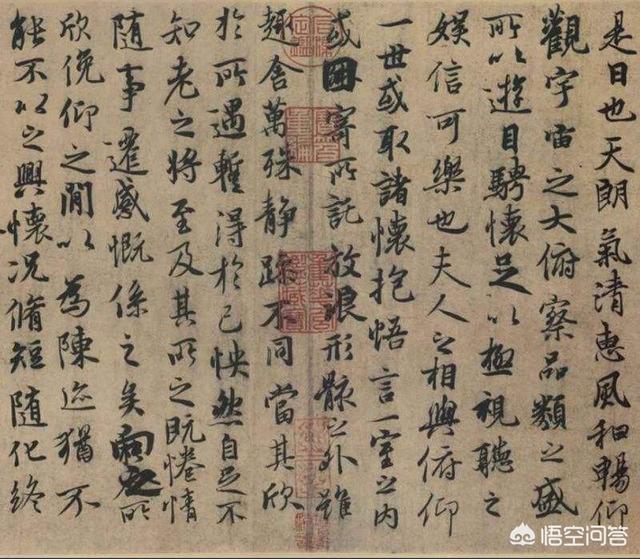 是日也天朗氣清惠風和暢仰
觀宇宙之大俯察品類之盛
所以遊目騁懷足以極視聽之
娛信可樂也夫人之相與俯仰
一世或取諸懷抱悟言一室之內
或因寄所託放浪形骸之外雖
趣舍萬殊靜躁不同當其欣
於所遇蹔得於己怏然自足不
知老之將至及其所之既惓情
隨事遷感慨係之矣向之所
欣俛仰之閒以為陳迹猶不
能不以之興懷況脩短隨化終
悟空问答